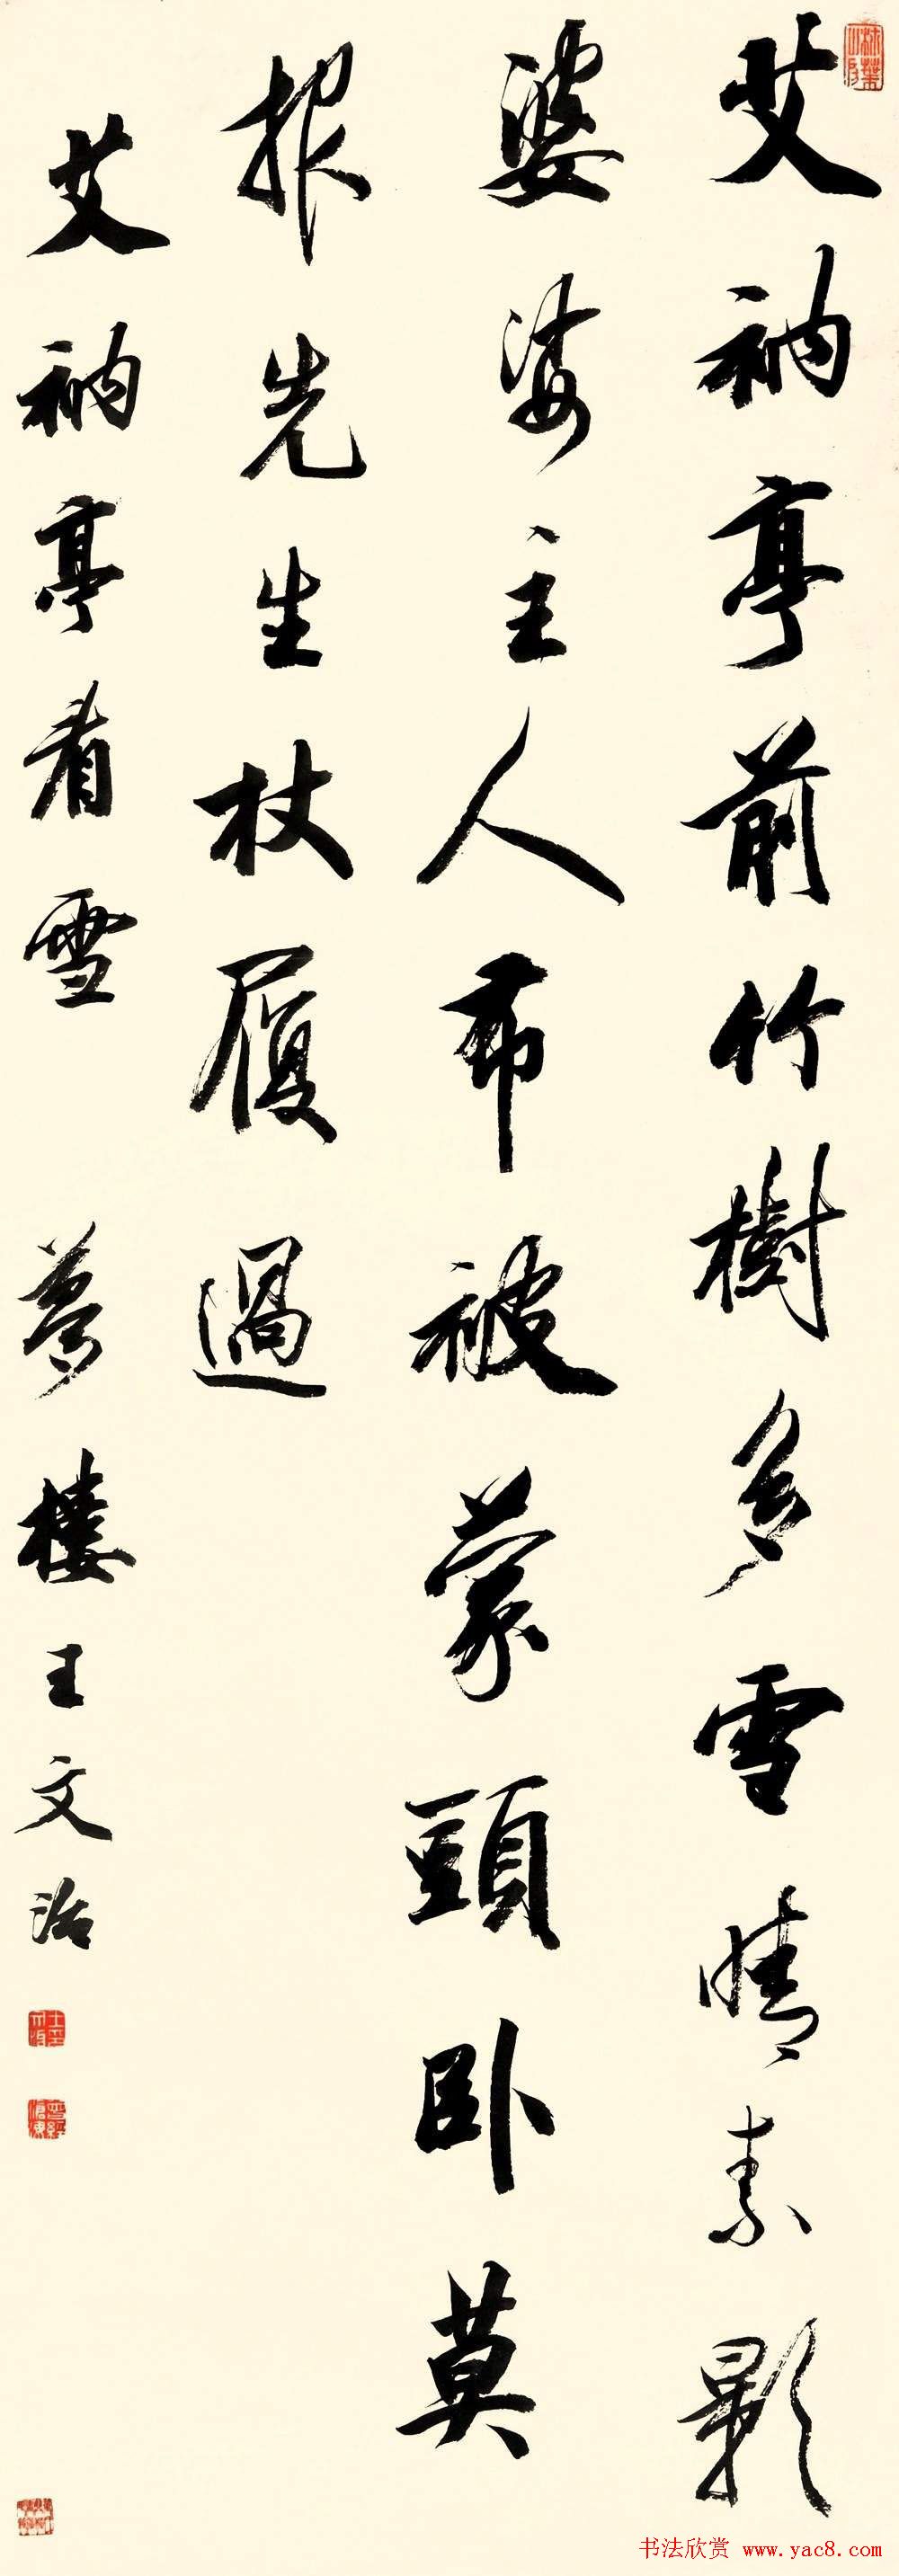 柿葉山房
艾衲亭前竹樹多雪晴素影
婆娑主人布被蒙頭臥莫
报先生杖履過
艾衲亭看雪 夢樓王文治
曾經滄海
书法欣赏 www.yac8.com